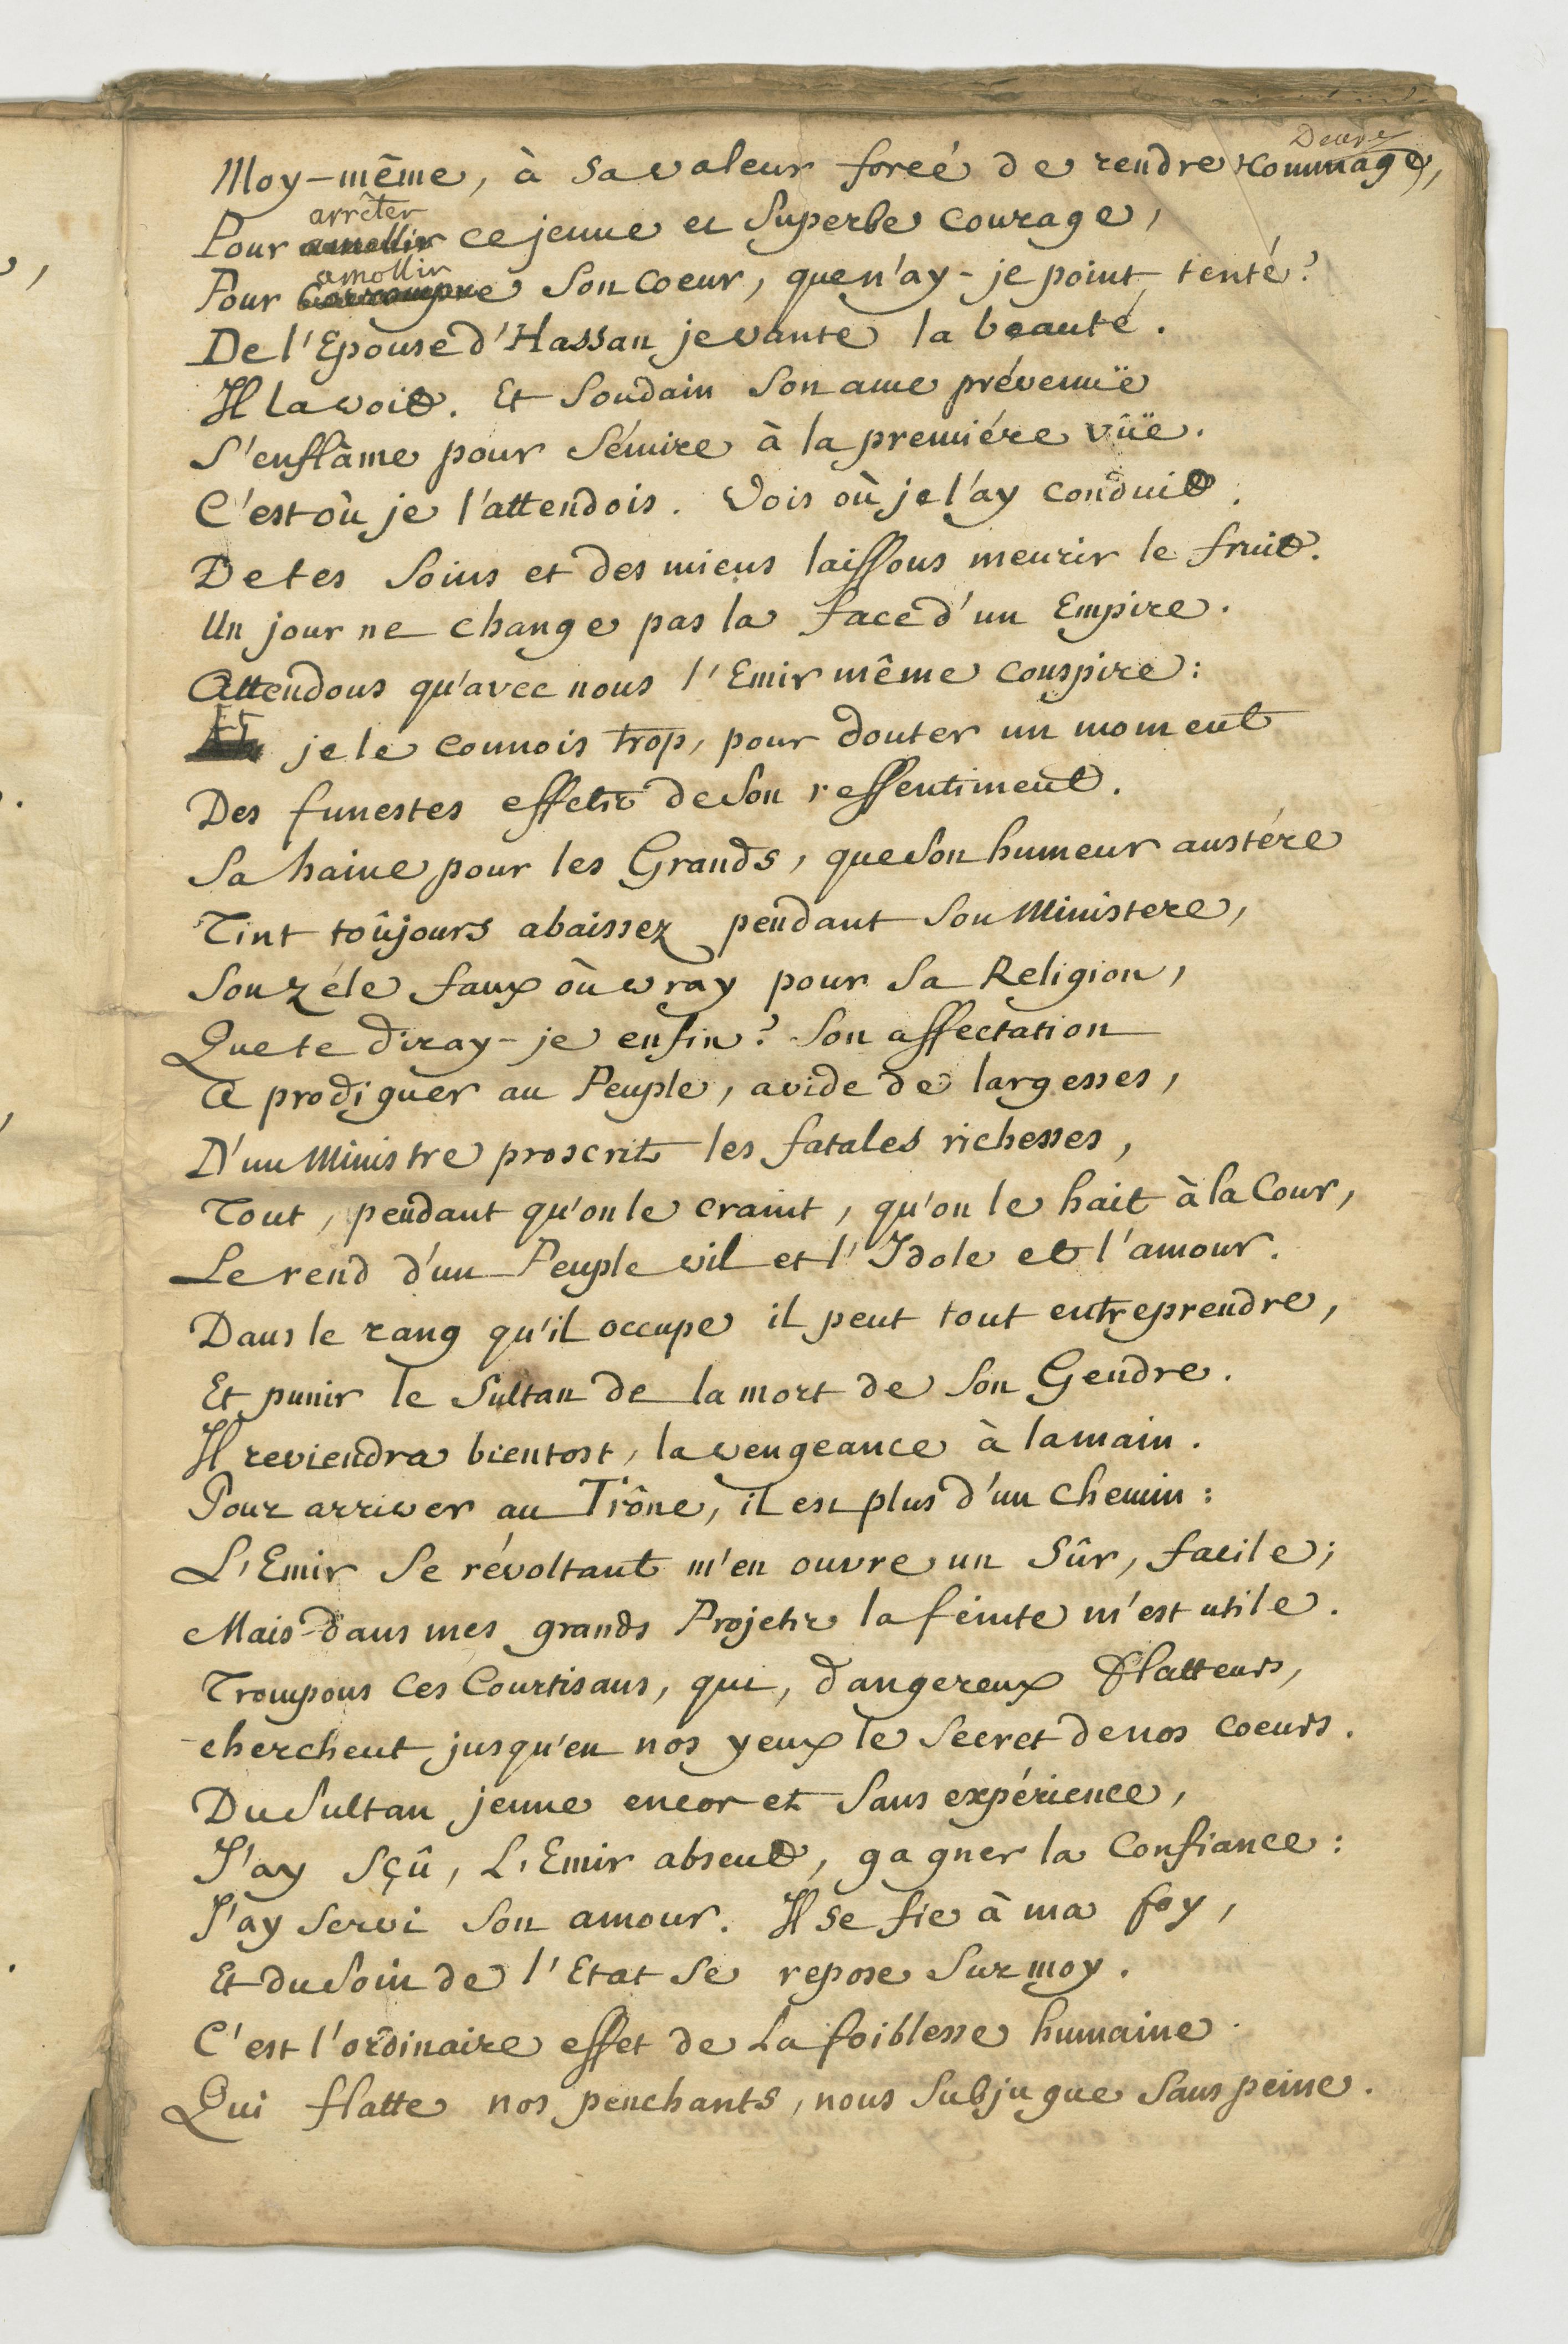 Deuxe
Moy-même, à sa valeur forcé de rendre hommage,
arrêter
Pour amollir ce jeune et superbe courage,
amollir
Pour corrompre son coeur, que n'ay-je point tenté?
De l'Epouse d'Hassan je vante la beauté.
Il la voit. Et soudain son ame prévenuë
S'enflâme pour Sémire à la premiére vûë.
C'est où je l'attendois. Vois où je l'ay conduit.
De tes soins et des miens laissons meurir le fruit.
Un jour ne change pas la face d'un Empire.
Attendons qu'avec nous l'Emir même conspire:
Et je le connois trop, pour douter un moment
Des funestes effets de son ressentiment.
Sa haine pour les Grands, que son humeur austére
Tint toûjours abaissez pendant son Ministere,
Son zéle faux où vray pour sa Religion,
Que te diray-je enfin? Son affectation
A prodiguer au Peuple, avide de largesses,
D'un Ministre proscrit les fatales richesses,
Tout, pendant qu'on le craint, qu'on le hait à la Cour,
Le rend d'un Peuple vil et l'Idole et l'amour.
Dans le rang qu'il occupe il peut tout entreprendre,
Et punir le Sultan de la mort de son Gendre.
Il reviendra bientost, la vengeance à la main.
Pour arriver au Trône, il est plus d'un chemin:
L'Emir se révoltant m'en ouvre un sûr, facile;
Mais dans mes grands Projets la feinte m'est utile.
Trompons ces Courtisans, qui, dangereux flatteurs,
cherchent jusqu'en nos yeux le secret de nos coeurs.
Du Sultan jeune encor et sans expérience,
J'ay sçû, L'Emir absent, gagner la confiance:
J'ay servi son amour. Il se fie à ma foy,
Et du soin de l'Etat se repose sur moy.
C'est l'ordinaire effet de la foiblesse humaine.
Qui flatte nos penchants, nous subjugue sans peine.